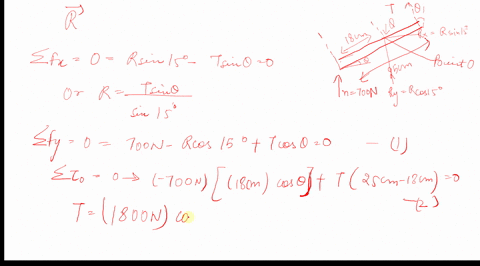 R
Σfx = 0 = Rsin15° - Tsinθ = 0
Or R = Tsinθ / sin 15°
Σfy = 0 = 700N - Rcos 15° + Tcosθ = 0 - (1)
Στ₀ = 0 → (-700N) [(18cm) cosθ] + T (25cm-18cm) = 0
(2)
T = (1800N) co
T θ
18cm θ
Rx = Rsin15°
Point O
n=700N Ry=Rcos15°